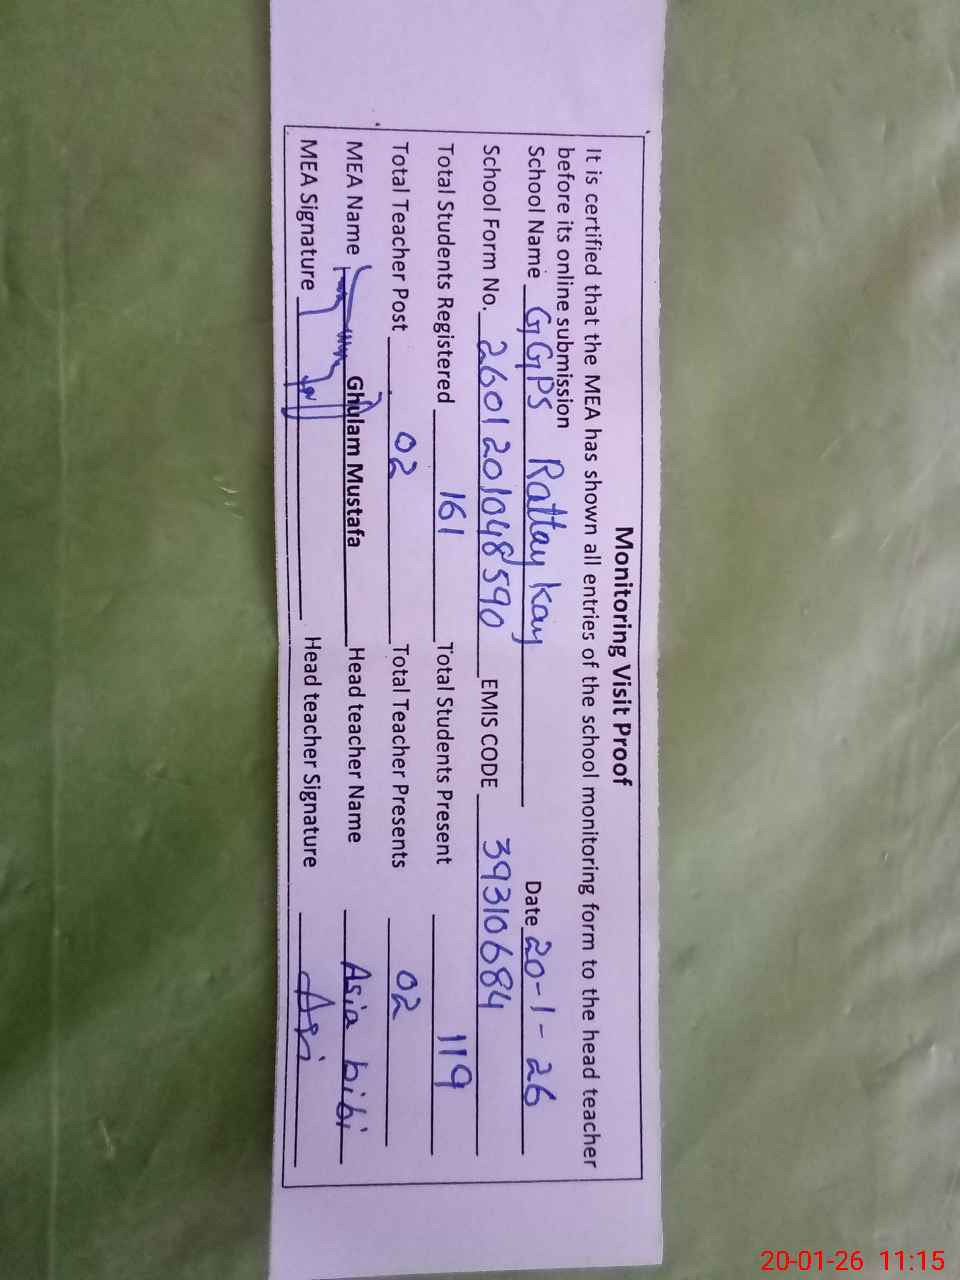 Monitoring Visit Proof
It is certified that the MEA has shown all entries of the school monitoring form to the head teacher
before its online submission
School Name GGPS Rattay Kay Date 20-1-26
School Form No. 2601201048590 EMIS CODE 39310684
Total Students Registered 161 Total Students Present 119
Total Teacher Post 02 Total Teacher Presents 02
MEA Name Ghulam Mustafa Head teacher Name Asia bibi
MEA Signature Head teacher Signature
20-01-26 11:15